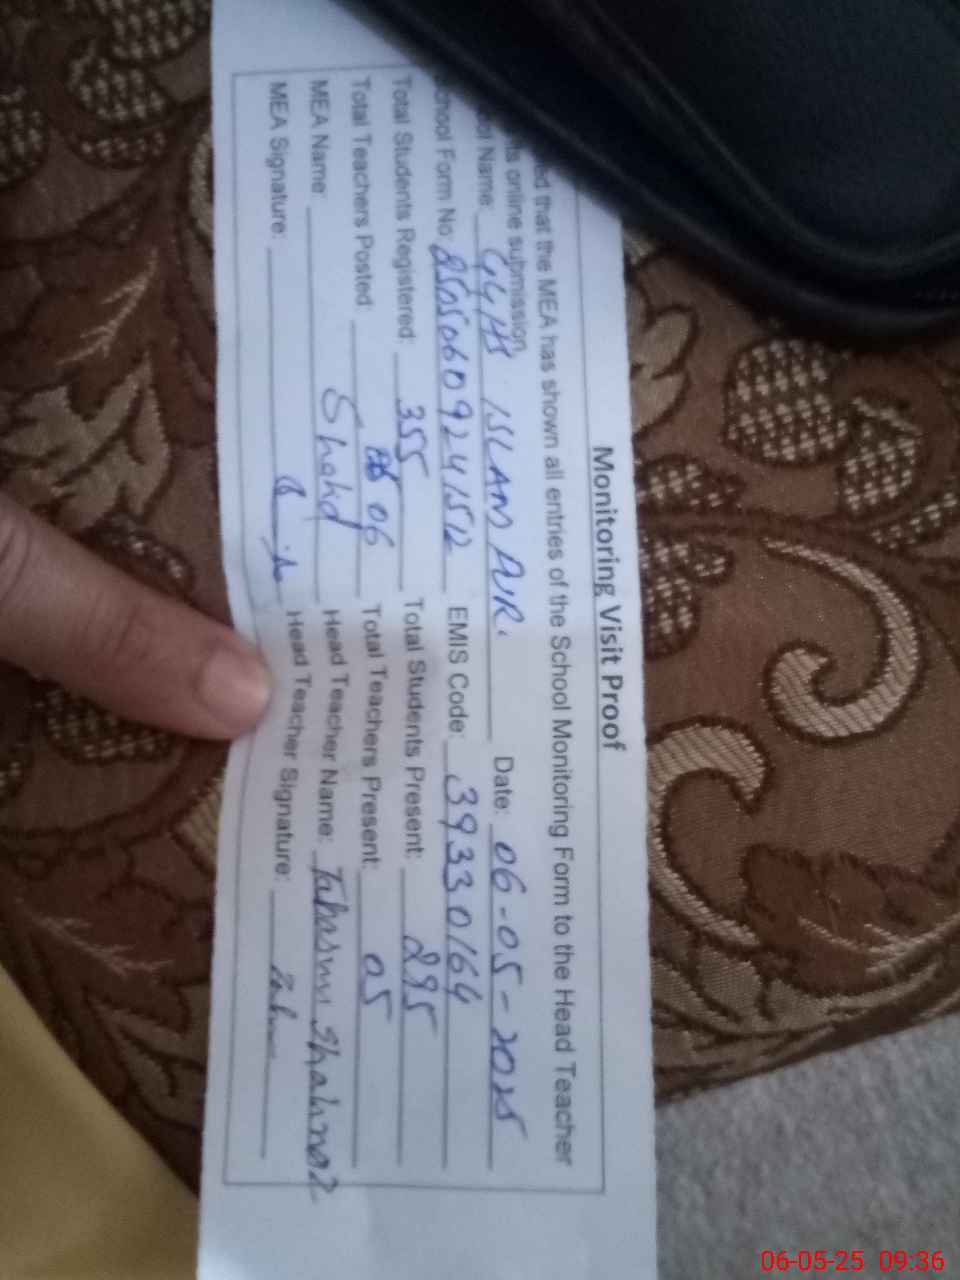 Monitoring Visit Proof
ed that the MEA has shown all entries of the School Monitoring Form to the Head Teacher
its online submission.
ol Name: GGHS ISLAM PUR. Date: 06-05-2025
chool Form No: EMIS Code: 39330164
Total Students Registered: 355 Total Students Present: 295
Total Teachers Posted: 06 Total Teachers Present: 05
MEA Name: Shahid Head Teacher Name: Shahnaz
MEA Signature: Head Teacher Signature:
06-05-25 09:36